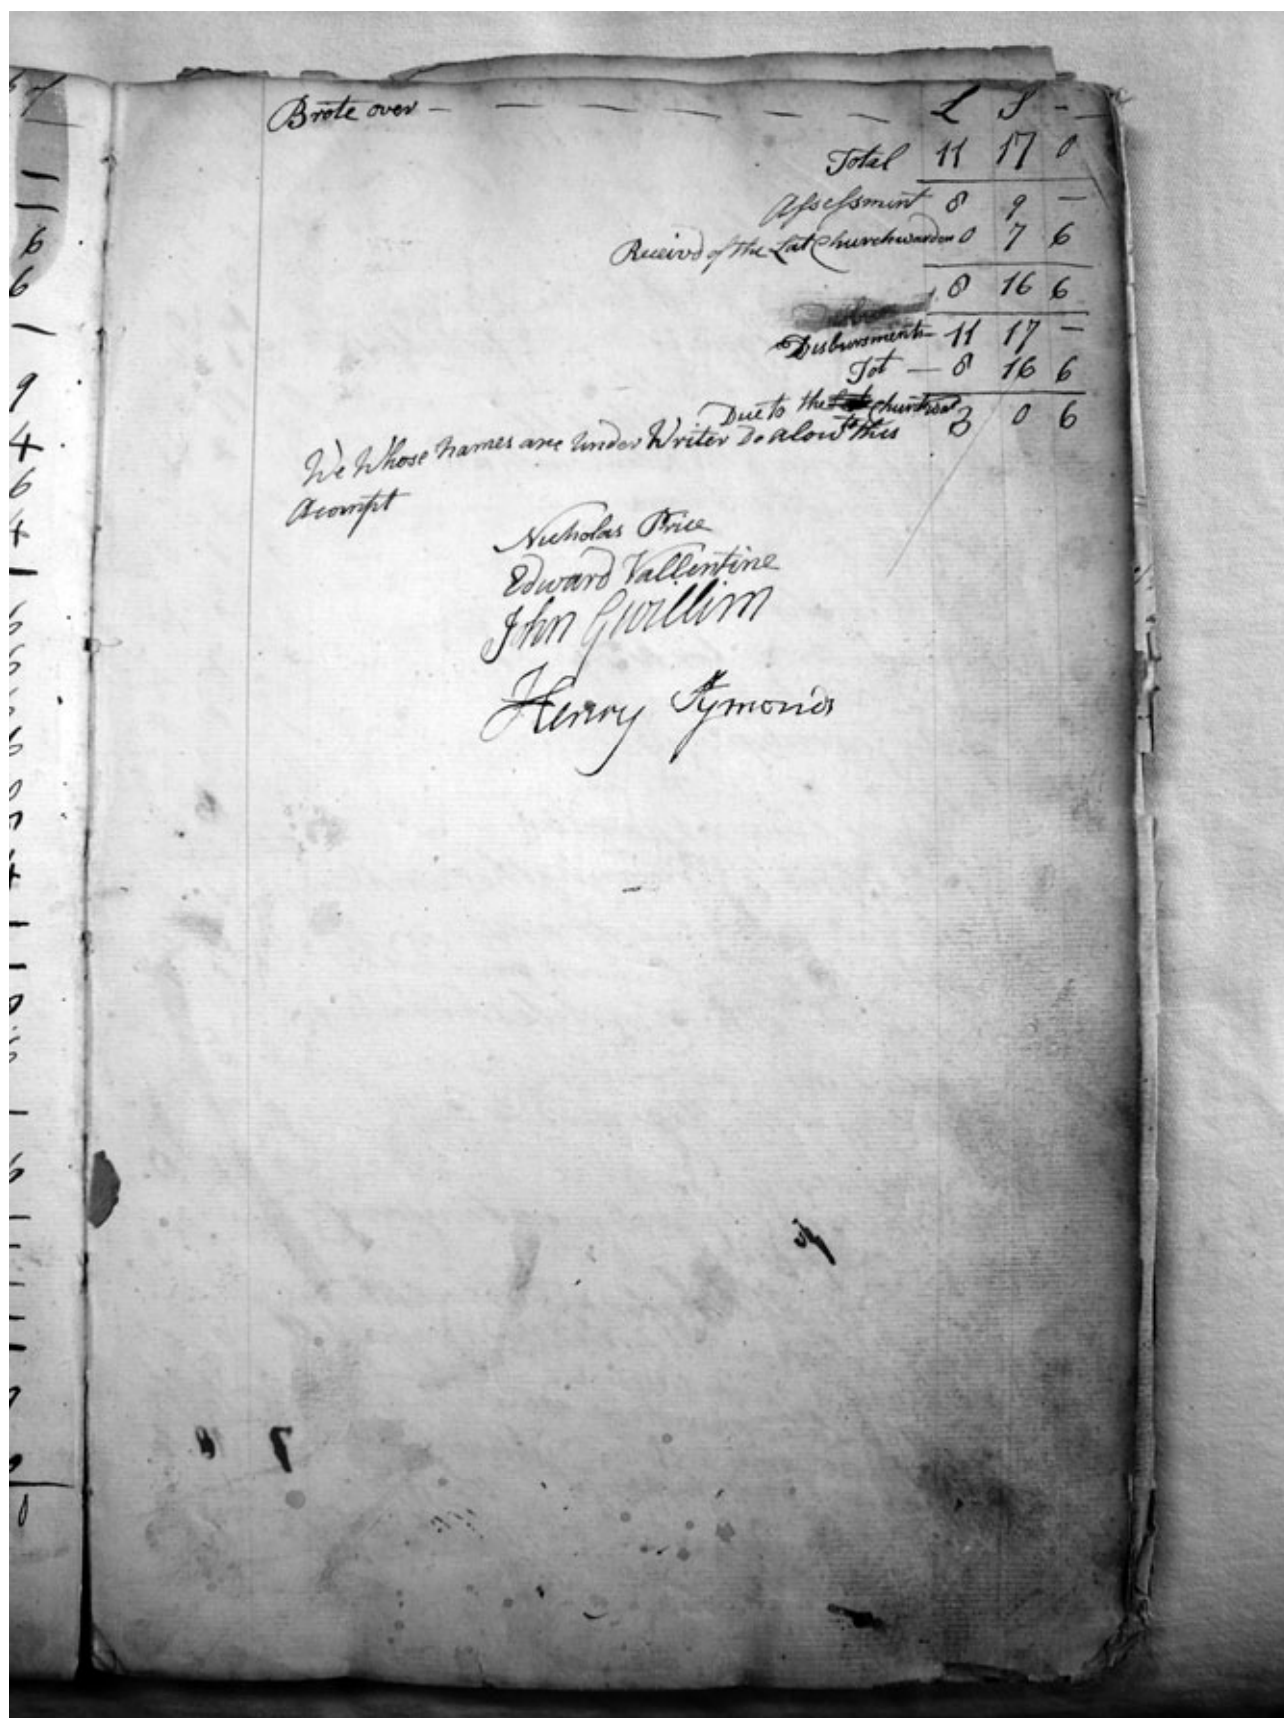 Brote over - - - - - - L S -
Total 11 17 0
Assessment 8 9 -
Receivd of the Late Churchwarden 0 7 6
8 16 6
Disbursments - 11 17 -
Tot - 8 16 6
Due to the Churchwar 3 0 6
We Whose names are under Writen Do alow this
Acompt
Nicholas Price
Edward Vallentine
John Gwillim
Henry Symonds